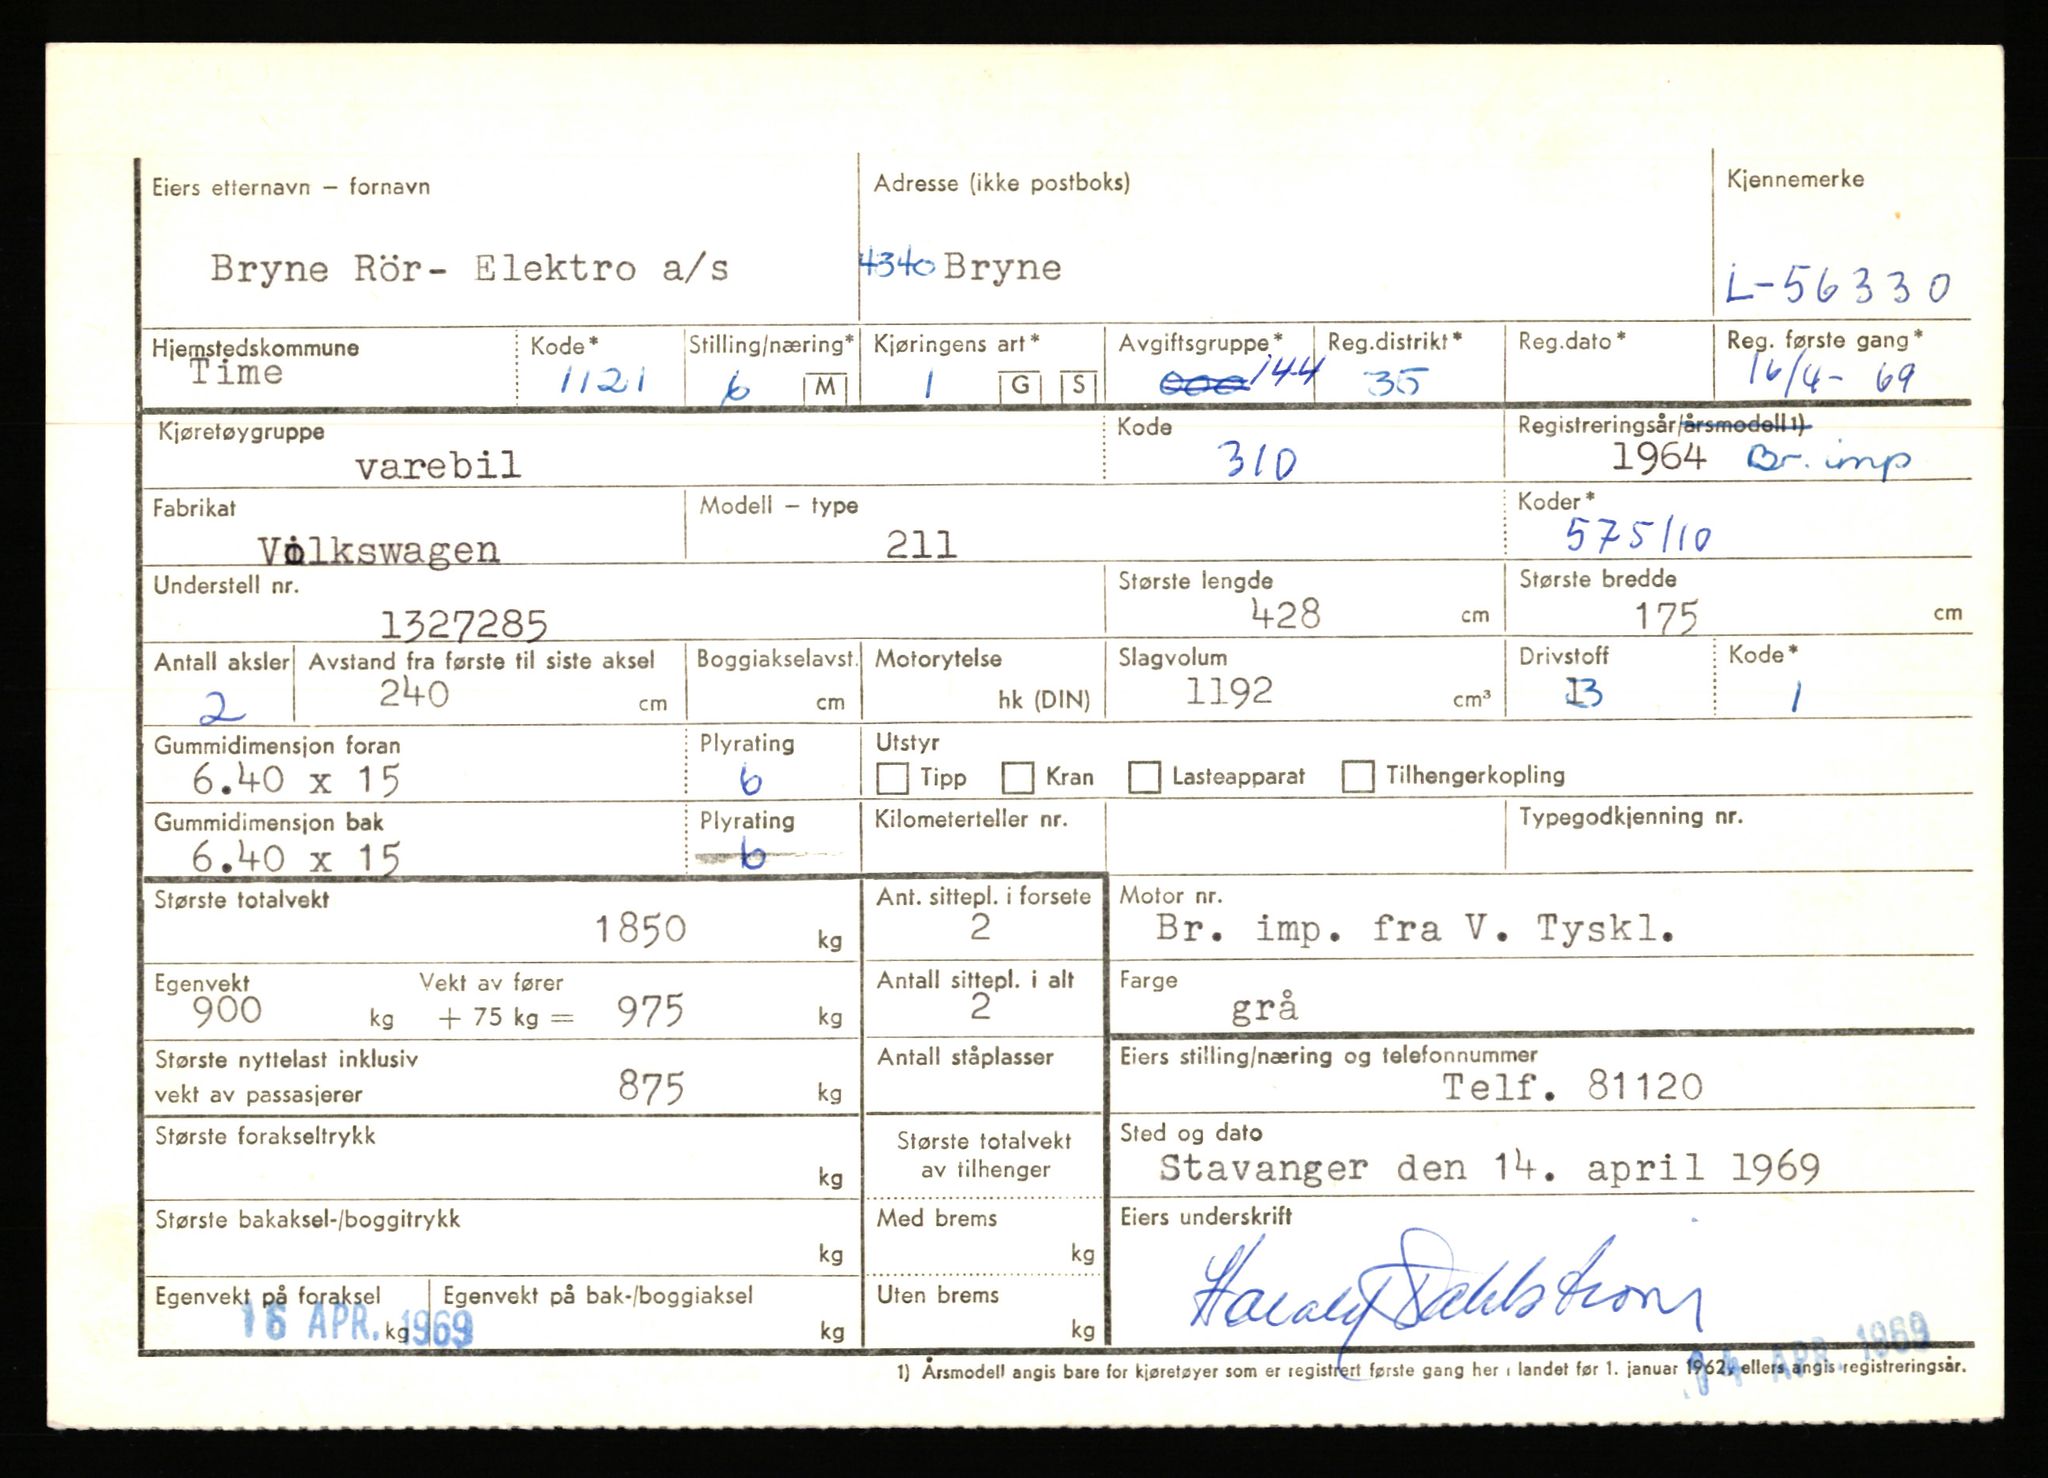 Eiers etternavn – fornavn Adresse (ikke postboks) Kjennemerke
Bryne Rör- Elektro a/s 4340 Bryne L-56330
Hjemstedskommune Kode* Stilling/næring* Kjøringens art* Avgiftsgruppe* Reg.distrikt* Reg.dato* Reg. første gang*
Time 1121 6 M 1 G S 000 144 35 16/4- 69
Kjøretøygruppe Kode Registreringsår/årsmodell 1)
varebil 310 1964 Br. imp
Fabrikat Modell – type Koder*
Volkswagen 211 575/10
Understell nr. Største lengde Største bredde
1327285 428 cm 175 cm
Antall aksler Avstand fra første til siste aksel Boggiakselavst. Motorytelse Slagvolum Drivstoff Kode*
2 240 cm cm hk (DIN) 1192 cm³ B 1
Gummidimensjon foran Plyrating Utstyr
6.40 x 15 6 Tipp Kran Lasteapparat Tilhengerkopling
Gummidimensjon bak Plyrating Kilometerteller nr. Typegodkjenning nr.
6.40 x 15 6
Største totalvekt Ant. sittepl. i forsete Motor nr.
1850 kg 2 Br. imp. fra V. Tyskl.
Egenvekt Vekt av fører Antall sittepl. i alt Farge
900 kg + 75 kg = 975 kg 2 grå
Største nyttelast inklusiv Antall ståplasser Eiers stilling/næring og telefonnummer
vekt av passasjerer 875 kg Telf. 81120
Største forakseltrykk kg Største totalvekt Sted og dato
av tilhenger Stavanger den 14. april 1969
Største bakaksel-/boggitrykk kg Med brems kg Eiers underskrift
Harald Dahlstrøm
Egenvekt på foraksel Egenvekt på bak-/boggiaksel Uten brems
16 APR. 1969 kg kg kg
14 APR. 1969
1) Årsmodell angis bare for kjøretøyer som er registrert første gang her i landet før 1. januar 1962, ellers angis registreringsår.